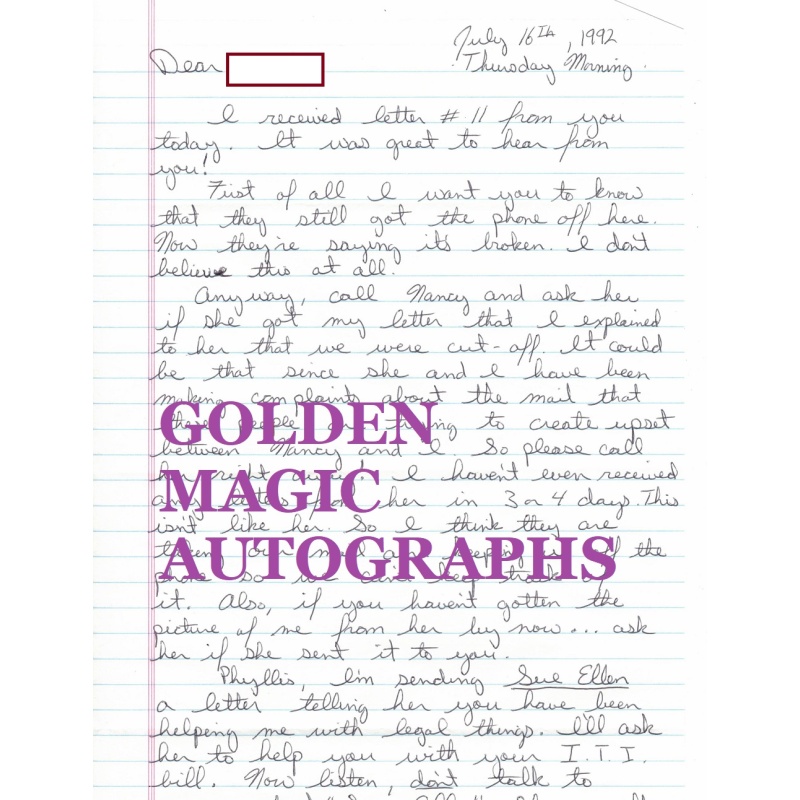 July 16th, 1992
Thursday Morning.
Dear
I received letter # 11 from you
today. It was great to hear from
you!
First of all I want you to know
that they still got the phone off here.
Now they're saying its broken. I don't
believe this at all.
Anyway, call Nancy and ask her
if she got my letter that I explained
to her that we were cut-off. It could
be that since she and I have been
making complaints about the mail that
these people are trying to create upset
GOLDEN
between Nancy and I. So please call
her right away! I haven't even received
MAGIC
any letters from her in 3 or 4 days. This
isn't like her. So I think they are
AUTOGRAPHS
our mail and keeping us off the
phone so we can't keep track of
it. Also, if you haven't gotten the
picture of me from her by now... ask
her if she sent it to you.
Phyllis, I'm sending Sue Ellen
a letter telling her you have been
helping me with legal things. I'll ask
her to help you with your I.T.I.
bill. Now listen, don't talk to